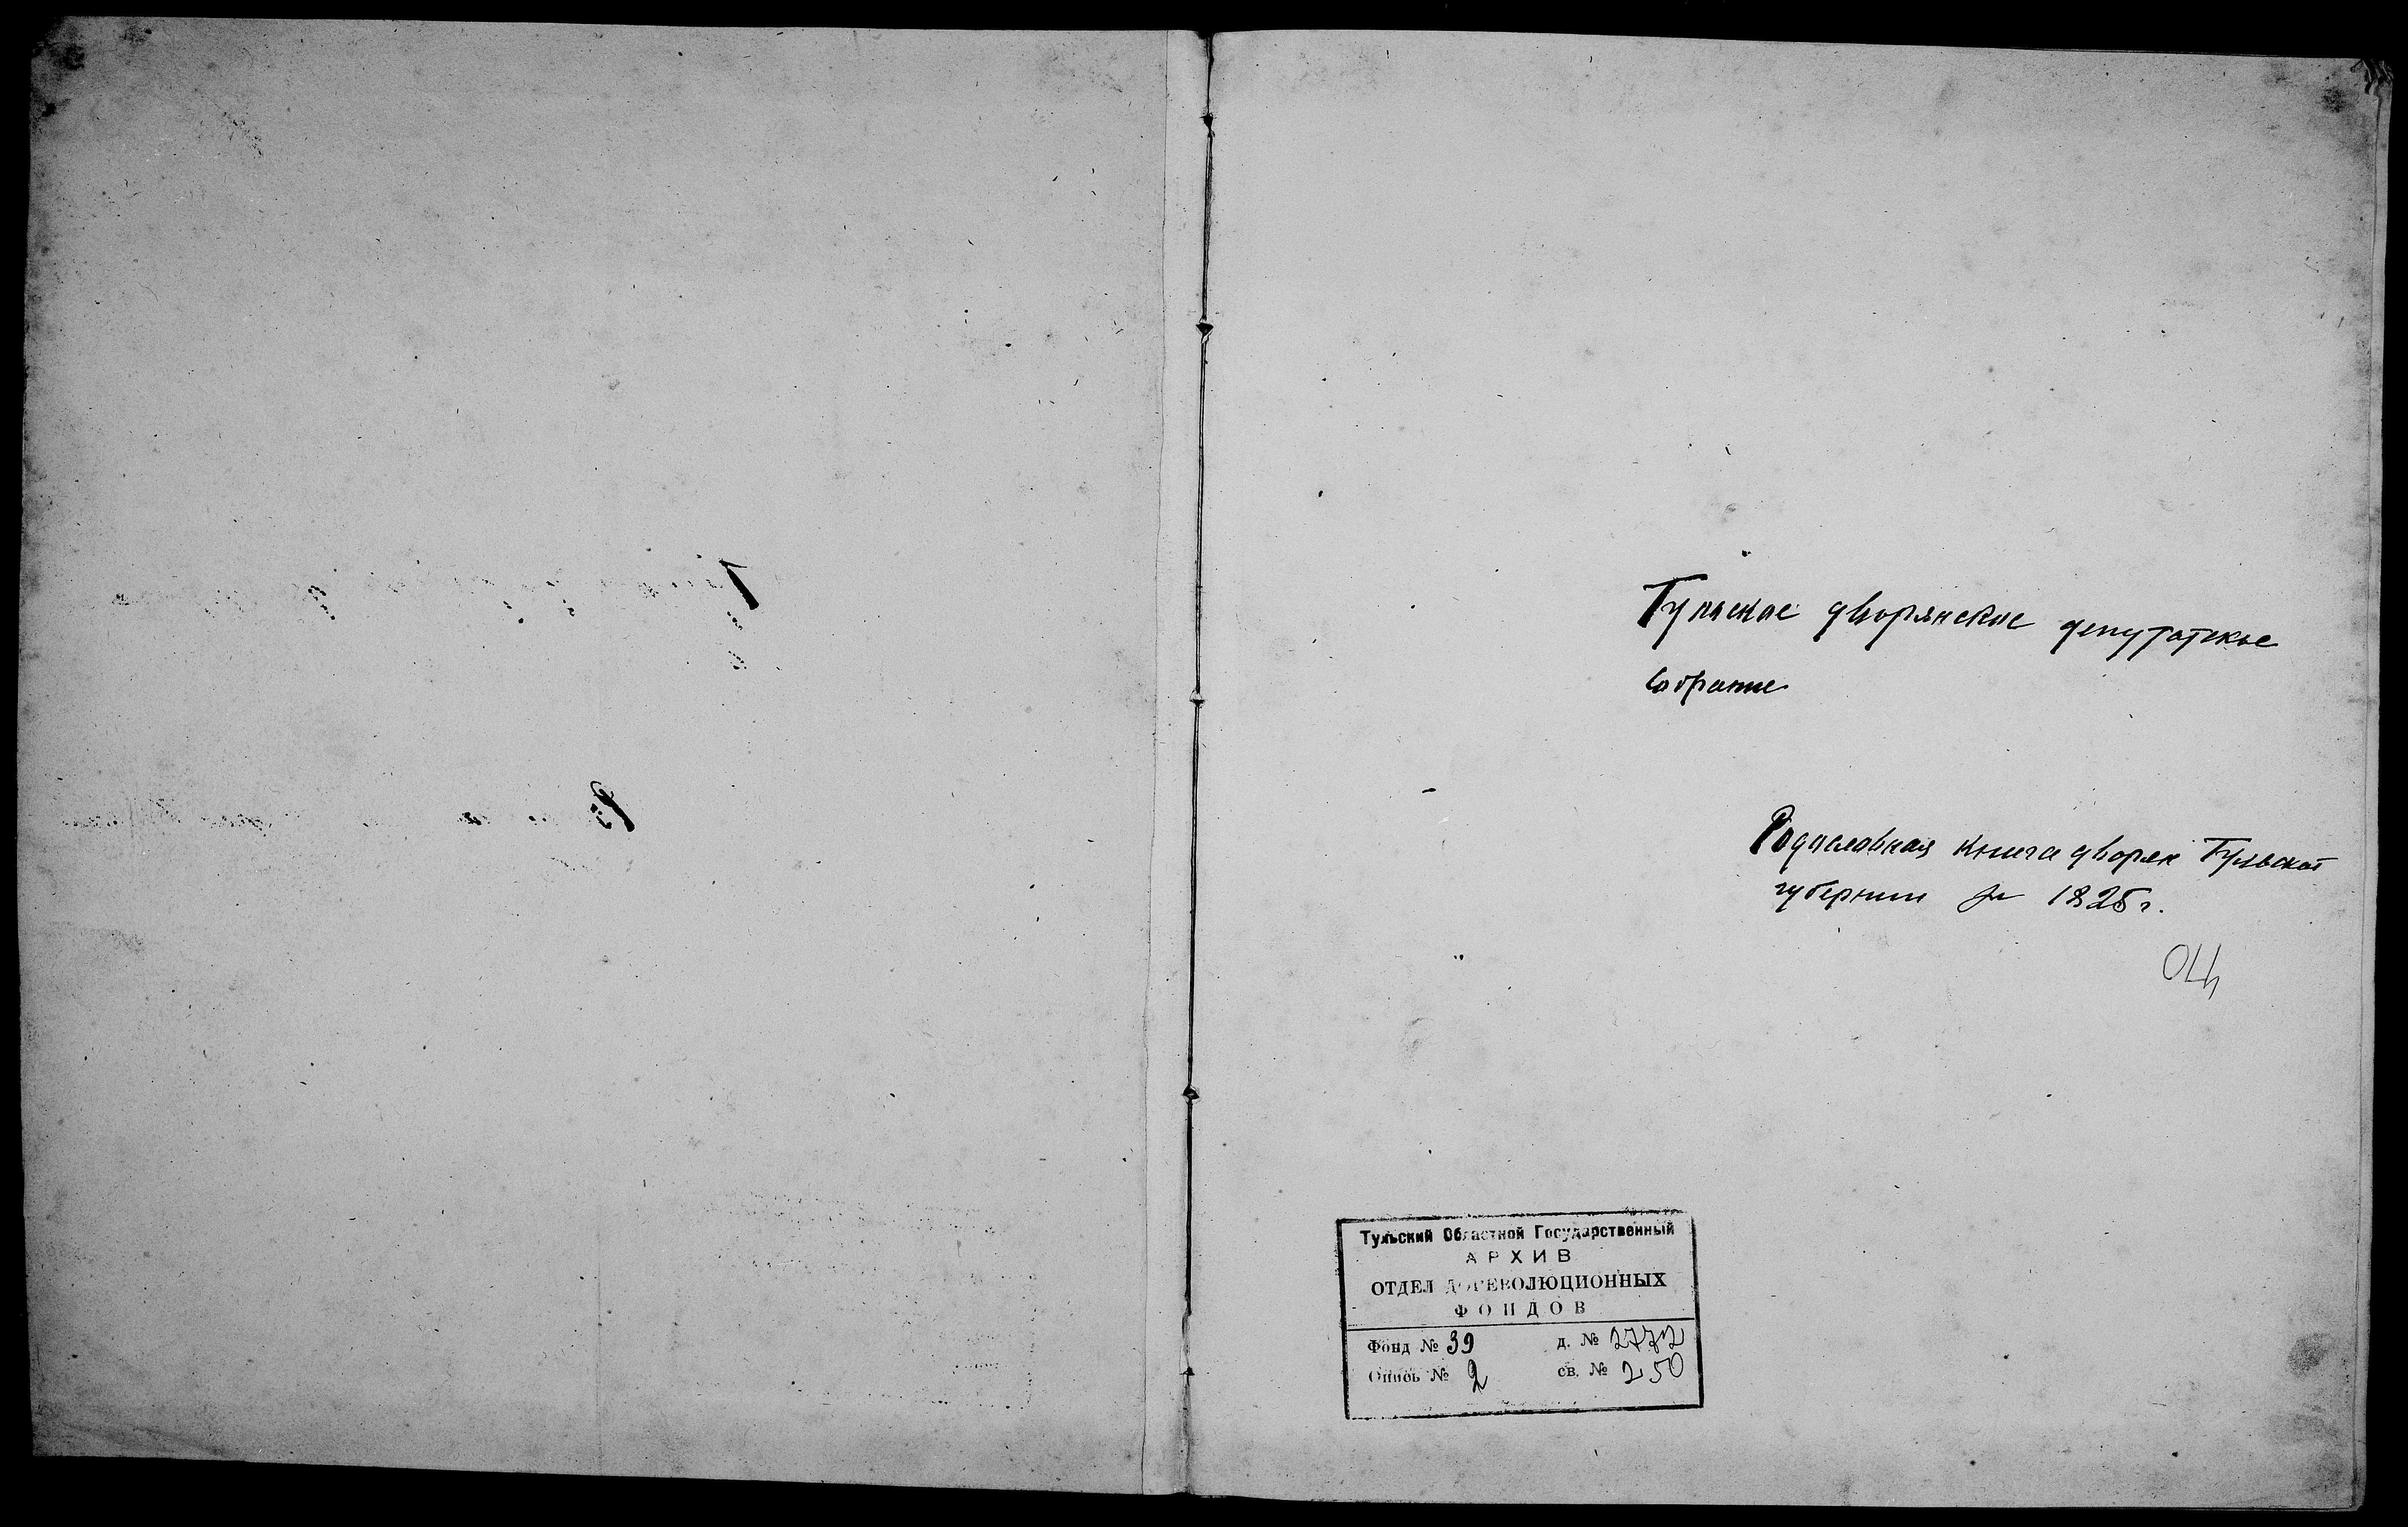 Тульское дворянское депутатское
собрание
Родословная книга дворян Тульской
губернии за 1825 г.
ОЦ
Тульский Областной Государственный
АРХИВ
ОТДЕЛ ДОРЕВОЛЮЦИОННЫХ
ФОНДОВ
Фонд № 39 д. № 2772
Опись № 2 св. № 250